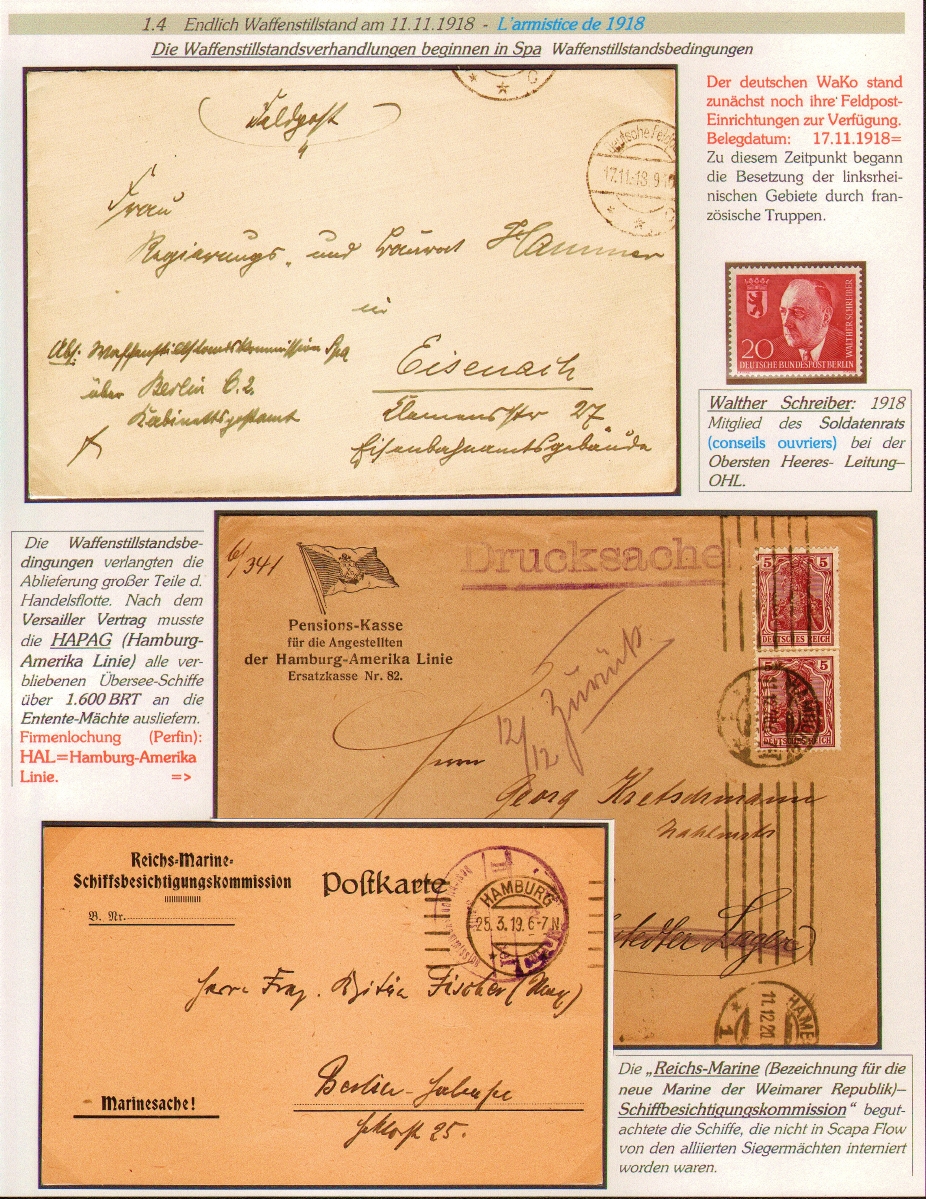 1.4 Endlich Waffenstillstand am 11.11.1918 - L'armistice de 1918
Die Waffenstillstandsverhandlungen beginnen in Spa Waffenstillstandsbedingungen
Feldpost
Deutsche Feld
17.11.18. 9
Frau
Regierungs- und Baurat Hammer
in
Eisenach
Clemensstr 27
Eisenbahnamtsgebäude
Abs: Waffenstillstandskommission Spa
über Berlin C. 2.
Kabinettspostamt
Der deutschen WaKo stand
zunächst noch ihre Feldpost-
Einrichtungen zur Verfügung.
Belegdatum: 17.11.1918=
Zu diesem Zeitpunkt begann
die Besetzung der linksrhei-
nischen Gebiete durch fran-
zösische Truppen.
20
WALTHER SCHREIBER
DEUTSCHE BUNDESPOST BERLIN
Walther Schreiber: 1918
Mitglied des Soldatenrats
(conseils ouvriers) bei der
Obersten Heeres- Leitung–
OHL.
Die Waffenstillstandsbe-
dingungen verlangten die
Ablieferung großer Teile d.
Handelsflotte. Nach dem
Versailler Vertrag musste
die HAPAG (Hamburg-
Amerika Linie) alle ver-
bliebenen Übersee-Schiffe
über 1.600 BRT an die
Entente-Mächte ausliefern.
Firmenlochung (Perfin):
HAL=Hamburg-Amerika
Linie. =>
6/341
Drucksache
Pensions-Kasse
für die Angestellten
der Hamburg-Amerika Linie
Ersatzkasse Nr. 82.
5 5
DEUTSCHES REICH
5 5
DEUTSCHES REICH
HAMBURG
12/12 Zurück
Herrn
Georg Kretschmann
stedter Lager
HAMB
11.12.20
1
Reichs-Marine-
Schiffsbesichtigungskommission
B. Nr.
Postkarte
HAMBURG
25.3.19. 6-7 N
Herrn Frg. Fischer
Berlin-Halensee
Marinesache!
25.
Die „Reichs-Marine (Bezeichnung für die
neue Marine der Weimarer Republik)–
Schiffbesichtigungskommission“ begut-
achtete die Schiffe, die nicht in Scapa Flow
von den alliierten Siegermächten interniert
worden waren.